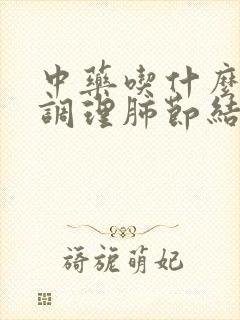 中藥喫什麼
調理肺節結
旖旎萌妃